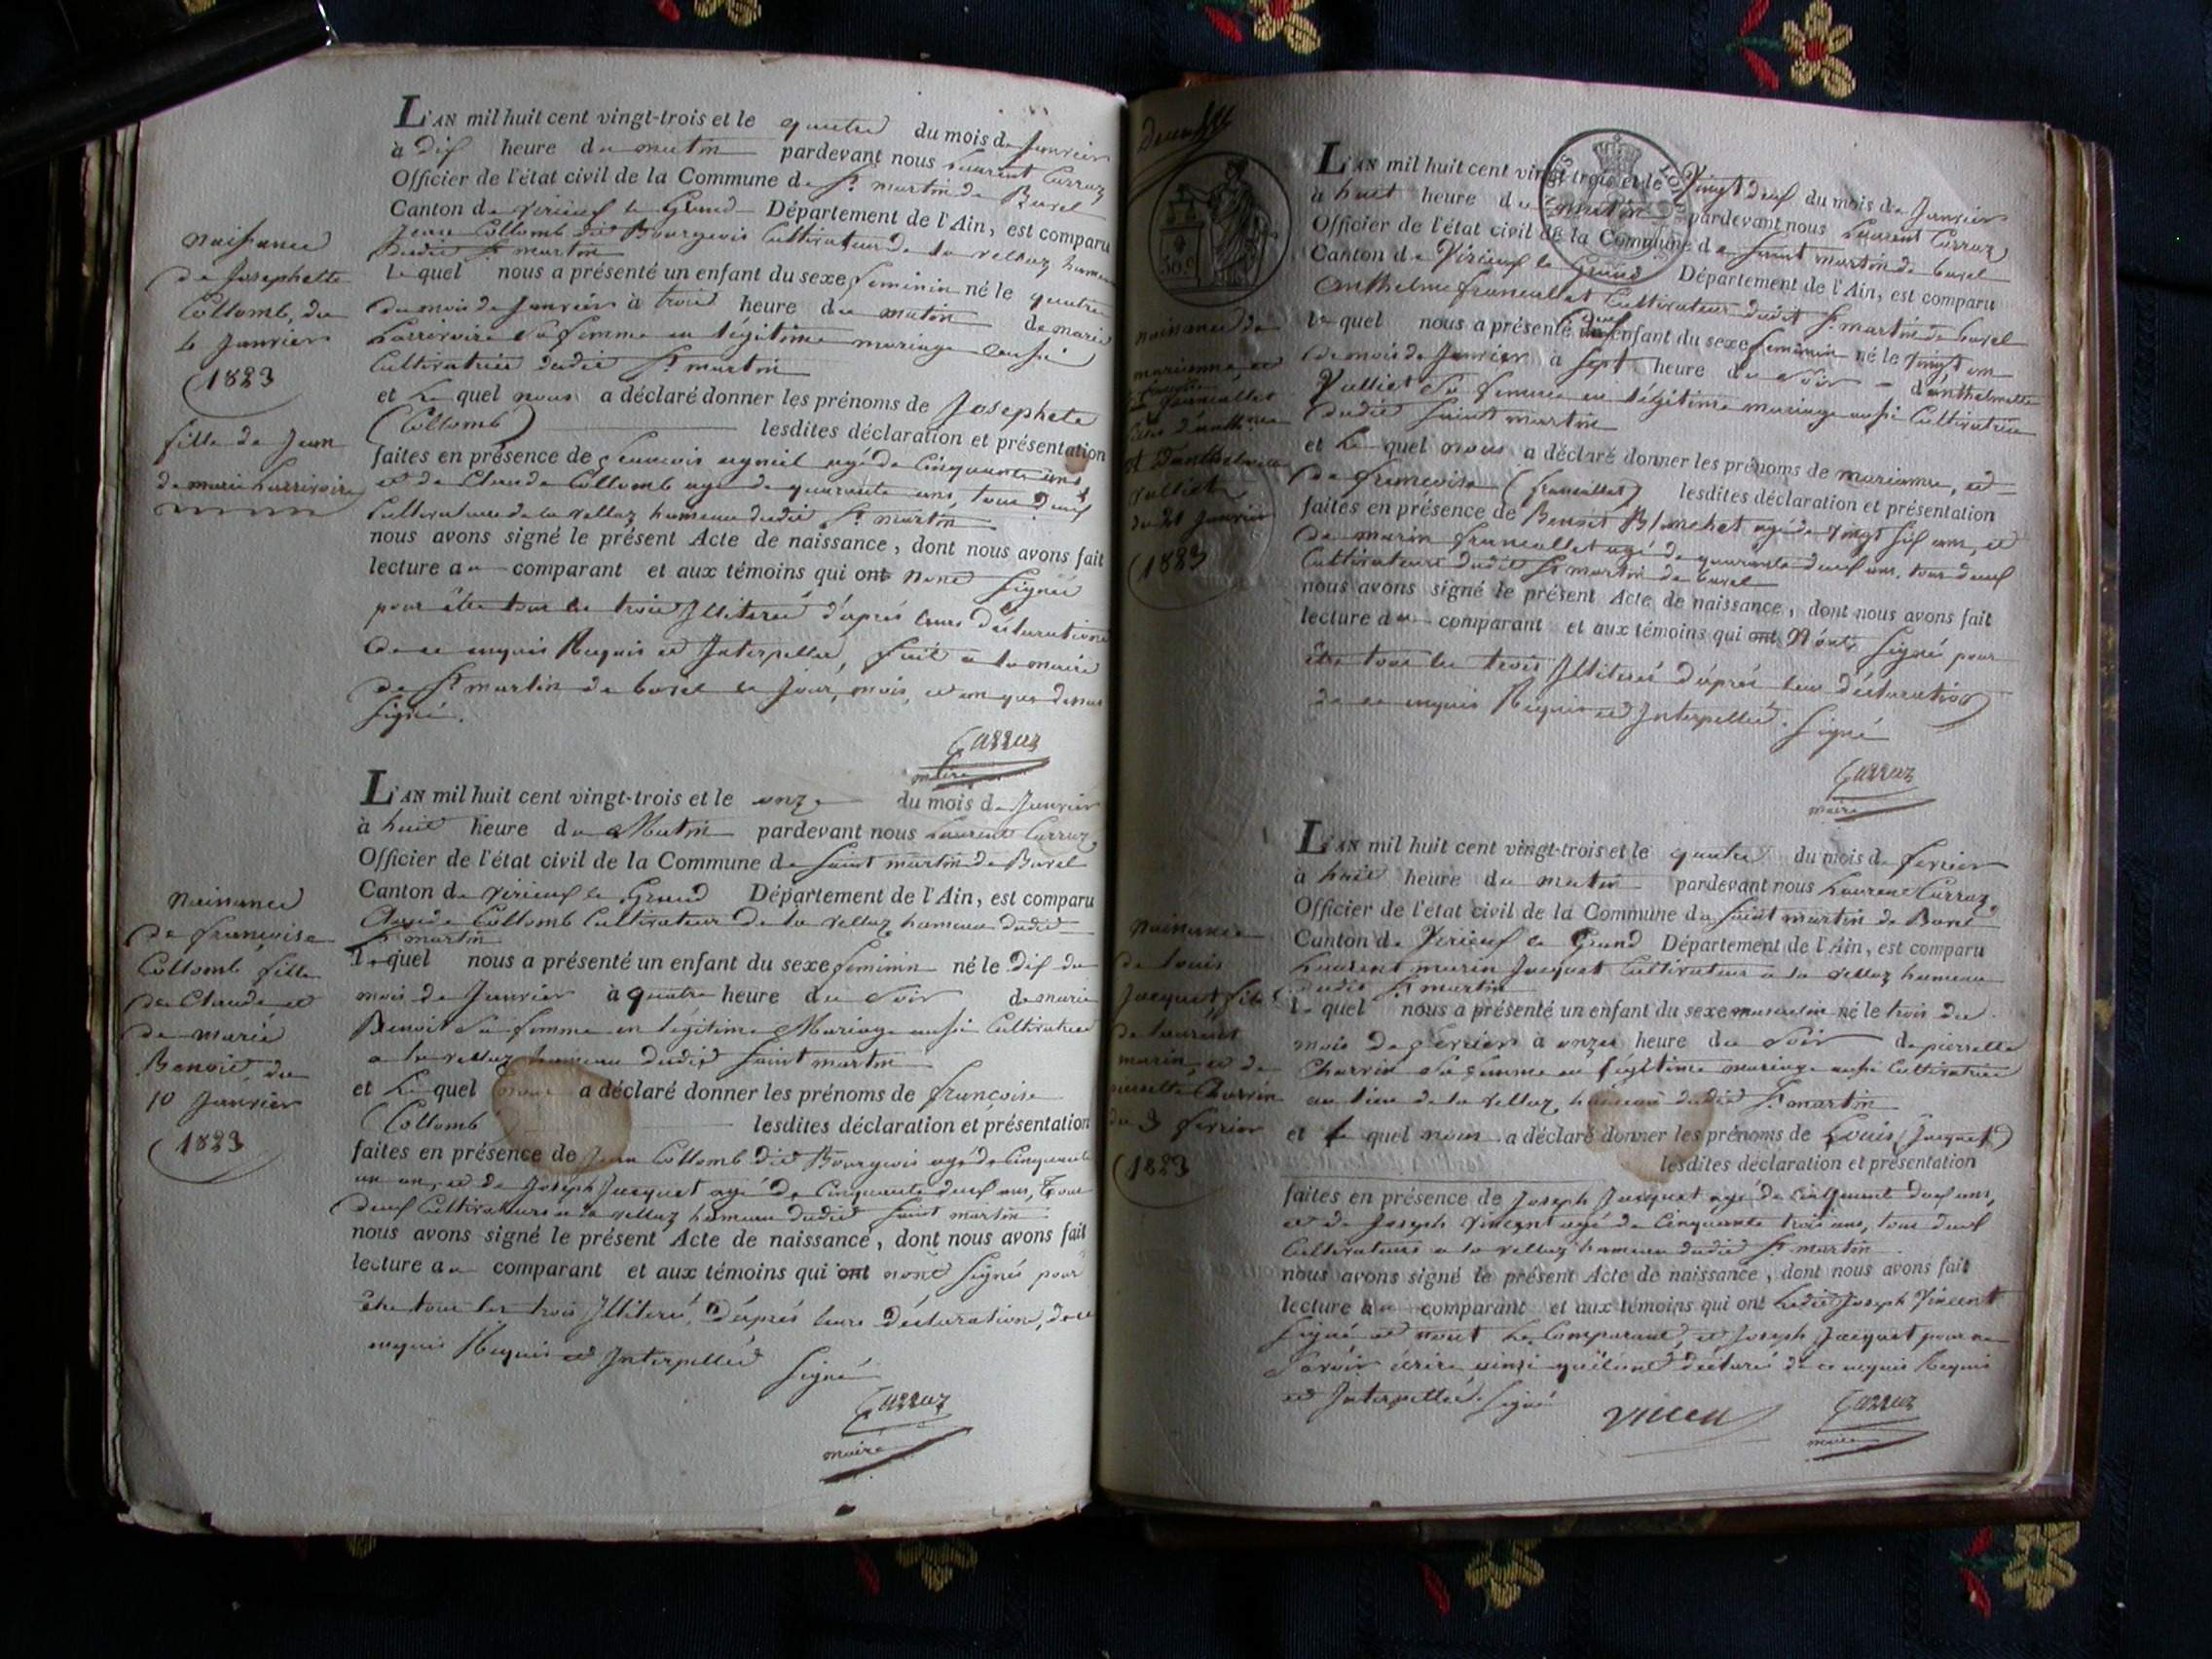 L'AN mil huit cent vingt-trois et le quatre du mois de Janvier
à dix heure du matin pardevant nous Laurent Carraz
Officier de l'état civil de la Commune de St. martin de Bavel
Canton de Virieux le Grand Département de l'Ain, est comparu
Jean Collomb dit Bourgeois Cultivateur de la vellaz hameau
dudit St. martin
lequel nous a présenté un enfant du sexe feminin né le quatre
du mois de Janvier à trois heure du matin de marie
Larrivoire Sa femme en légitime mariage aussi
Cultivatrice dudit St. martin
et Le quel nous a déclaré donner les prénoms de Josephete
(Collomb) lesdites déclaration et présentation
faites en présence de agé de Cinquante ans
et de Claude Collomb agé de quarante ans, tous deux
Cultivateurs de la vellaz hameau dudit St. martin
nous avons signé le présent Acte de naissance, dont nous avons fait
lecture au comparant et aux témoins qui ont nont Signés
pour être tous les trois Illiteré d'aprés leurs déclarations
de ce enquis Requis et Interpellés, fait a la mairie
de St. martin de bavel le Jour, mois, et an que dessus
Signé.
Carraz
maire
naissance
de Josephette
Collomb, du
4 Janvier
(1823
fille de Jean
de marie Larrivoire
L'AN mil huit cent vingt-trois et le onze du mois de Janvier
à huit heure du Matin pardevant nous Laurent Carraz
Officier de l'état civil de la Commune de Saint martin de Bavel
Canton de Virieux le Grand Département de l'Ain, est comparu
Claude Collomb Cultivateur de la vellaz hameau dudit
St. martin
lequel nous a présenté un enfant du sexe feminin né le dix du
mois de Janvier à quatre heure du Soir de marie
Benoit Sa femme en légitime Mariage aussi Cultivatrice
a la vellaz hameau dudit Saint martin
et Le quel nous a déclaré donner les prénoms de françoise
(Collomb lesdites déclaration et présentation
faites en présence de Jean Collomb dit Bourgeois agé de Cinquante
un an, et de Joseph Jacquet agé de Cinquante deux ans, Tous
deux Cultivateurs a la vellaz hameau dudit saint martin
nous avons signé le présent Acte de naissance, dont nous avons fait
lecture au comparant et aux témoins qui ont nont Signés pour
être tous les trois Illiteré, D'aprés leurs déclaration, de ce
enquis Requis et Interpellés
Signé
Carraz
maire
naissance
de françoise
Collomb fille
de Claude et
de marie
Benoit, du
10 Janvier
(1823
L'AN mil huit cent vingt-trois et le Vingt deux du mois de Janvier
à huit heure du matin pardevant nous Laurent Carraz
Officier de l'état civil de la Commune de Saint martin de bavel
Canton de Virieux le Grand Département de l'Ain, est comparu
Anthelme francallet Cultivateur dudit St. martin de bavel
lequel nous a présenté deux enfant du sexe feminin né le Vingt un
du mois de Janvier à Sept heure du Soir d'anthelmette
Vulliet Sa femme en légitime mariage aussi Cultivatrice
dudit Saint martin
et Le quel nous a déclaré donner les prénoms de marianne, et
de francoise (francallet) lesdites déclaration et présentation
faites en présence de Benoit Blanchet agé de Vingt Six ans, et
de marin francallet agé de quarante deux ans, tous deux
Cultivateurs dudit St. martin de bavel
nous avons signé le présent Acte de naissance, dont nous avons fait
lecture au comparant et aux témoins qui ont N'ont Signés pour
être tous les trois Illiterés d'aprés leur déclaration
de ce enquis Requis et Interpellés. Signé
Carraz
maire
naissance de
marianne et
francallet
et D'anthelmette
Vulliet
du 21 Janvier
(1823
L'AN mil huit cent vingt-trois et le quatre du mois de fevrier
à huit heure du matin pardevant nous Laurent Carraz
Officier de l'état civil de la Commune de Saint martin de Bavel
Canton de Virieux le Grand Département de l'Ain, est comparu
Laurent marin Jacquet Cultivateur a la vellaz hameau
dudit St. martin
lequel nous a présenté un enfant du sexe masculin né le trois du
mois de fevrier à onze heure du Soir de pierrette
Charvin Sa femme en légitime mariage aussi Cultivatrice
au lieu de la vellaz hameau dudit St. martin
et Le quel nous a déclaré donner les prénoms de Louis (Jacquet)
lesdites déclaration et présentation
faites en présence de Joseph Jacquet agé de Cinquante deux ans,
et de Joseph Vincent agé de Cinquante trois ans, tous deux
Cultivateurs a la vellaz hameau dudit St. martin
nous avons signé le présent Acte de naissance, dont nous avons fait
lecture au comparant et aux témoins qui ont Ledit Joseph Vincent
Signé et nont Le Comparant, et Joseph Jacquet pour ne
Savoir écrire ainsi qu'ils ont déclaré de ce enquis Requis
et Interpellés. Signé
Vincen
Carraz
maire
naissance
de Louis
Jacquet fils
de laurent
marin, et de
pierrette Charvin
du 3 fevrier
(1823